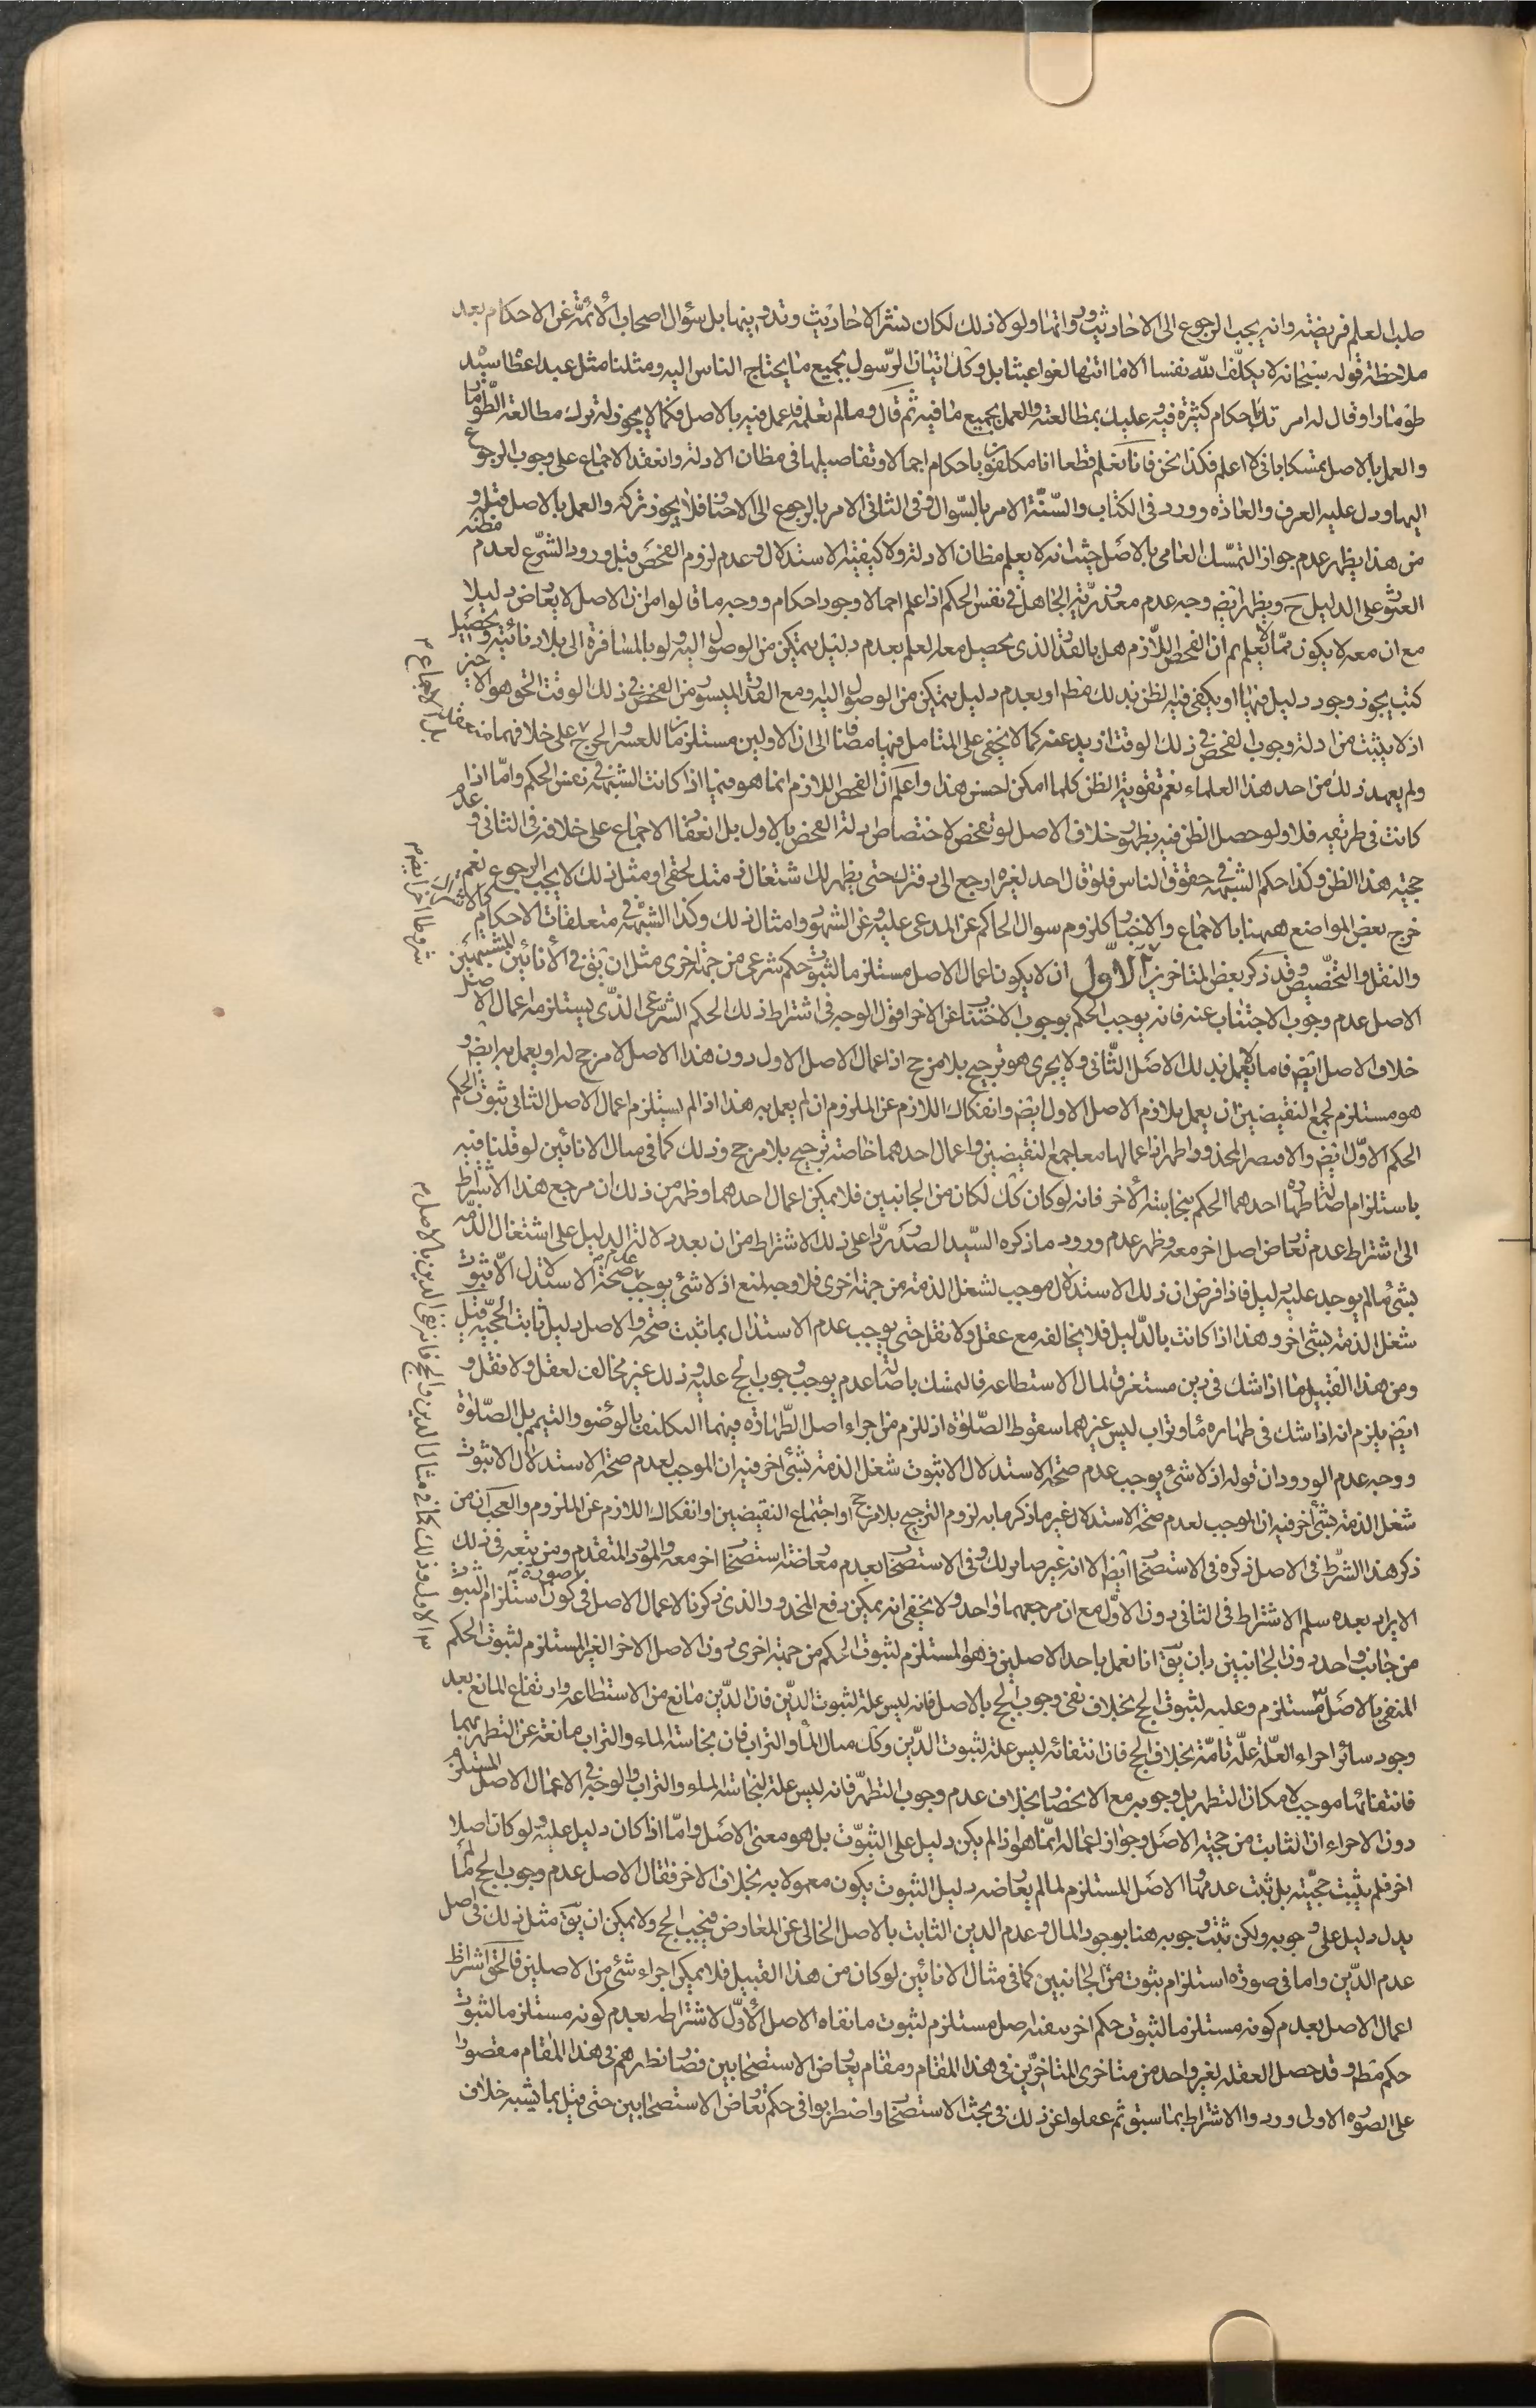 طلب العلم فريضته وانه يجب الرجوع الى الاحاديث ورواتها ولولا ذلك لكان نشر الاحاديث وتدوينها بل سؤال اصحاب الأئمّة عن الاحكام بعد
ملاحظة قوله سبحانه لا يكلّف الله نفسا الا ما اتيها لغوا عبثا بل وكذا تيان الرّسول بجميع ما يحتاج الناس اليه ومثلنا مثل عبد اعطا سيّد
طوما را وقال له امرتك باحكام كثيرة فيه وعليك بمطالعته والعمل بجميع ما فيه ثم قال وما لم تعلمه فاعمل فيه بالاصل فكما لا يجوز له ترك مطالعة الطّوما
والعمل بالاصل متمسكا بانى لا اعلم فكذا نحن فانا نعلم قطعا انا مكلفون باحكام اجمالا وتفاصيلها فى مظان الادلة وانعقد الاجماع على وجوب الرجوع
اليها ودل عليه العرف والعادة وورد فى الكتاب والسّنّة الامر بالسّوال وفى الثانى الامر بالرجوع الى الاخبار فلا يجوز تركه والعمل بالاصل قبله و
من هذا يظهر عدم جواز التمسّك العامى بالاصل حيث انه لا يعلم مظان الادلة ولا كيفية الاستدلال وعدم لزوم الفحص قبل ورود الشرع لعدم مظنه
العثور على الدليل ح ويظهر ايضا وجه عدم معذوريّة الجاهل فى نفس الحكم اذا علم اجمالا وجود احكام ووجه ما قالوا من ان الاصل لا يعارض دليلا
مع ان معه لا يكون ممّا لا يعلم ثم ان الفحص اللّازم هل بالقدر الذى يحصيل معه العلم بعدم دليل يتمكن من الوصول اليه ولو بالمسافرة الى بلاد نائية وتحصيل
كتب يجوز وجود دليل فيها او يكفى فيه الظن بذلك مطم او بعدم دليل يتمكن من الوصول اليه ومع القدر الميسور من الفحص فى ذلك الوقت الحق هو الاخير
اذ لا يثبت من ادلة وجوب الفحص فى ذلك الوقت ازيد عنه كما لا يخفى على المتامل فيها مضافا الى ان الاولين مستلزمان للعسر والحرج على خلافهما
ولم يعهد ذلك من احد هذا العلماء نعم تقوية الظن كلما امكن احسن هذا واعلم ان الفحص اللازم انما هو فيما اذا كانت الشبهة فى نفس الحكم وامّا اذا
كانت فى طريقه فلا ولو حصل الظن فيه بظهور خلاف الاصل لو تفحص لاختصاص ادلة الفحص بالاول بل انعقاد الاجماع على خلافه فى الثانى و عدم
حجية هذا الظن وكذا حكم الشبهة فى حقوق الناس فلو قال احد لغيره ارجع الى دفترك حتى يظهر لك اشتغال ذمتك لحقى او مثل ذلك لا يجب الرجوع نعم
خرج بعض المواضع ههنا بالاجماع والاخبار كلزوم سوال الحاكم عن المدعى عليه وعن الشهود وامثال ذلك وكذا الشبهة فى متعلقات الاحكام
والنقل والتخصيص وقد ذكر بعض المتاخرين الاول ان لا يكون اعمال الاصل مستلزما لثبوت حكم شرعى من جهة اخرى مثل ان يق فى الأنائين المشتبهين
الاصل عدم وجوب الاجتناب عنه فانه يوجب الحكم بوجوب الاجتناب عن الاخر اقول الوجه فى اشتراط ذلك الحكم الشرعى الذّى يستلزمه اعمال الا
خلاف الاصل ايضا فاما لا يعمل بذلك الاصل الثّانى ولا يجرى هو ترجيح بلا مرجح اذ اعمال الاصل الاول دون هذا الاصل لا مرجح له او يعمل به ايضا و
هو مستلزم لجمع النقيضين ان يعمل بلازم الاصل الاول ايضا وانفكاك اللازم عن الملزوم ان لم يعمل به هذا اذا لم يستلزم اعمال الاصل الثانى ثبوت الحكم
باستلزام اصالة طهارة احدهما الحكم بنجاسة الأخر فانه لو كان كك لكان من الجانبين فلا يمكن اعمال احدهما وظهر من ذلك ان مرجع هذا الاشتراط
الى اشتراط عدم تعارض اصل اخر معه وظهر عدم ورود ما ذكره السّيد الصدر ردّا على ذلك الاشتراط من ان بعد دلالة الدليل على اشتغال الذّمه
بشئ ما لم يوجد عليه دليل فاذا فرض ان ذلك الاستدلال موجب لشغل الذمة من جهة اخرى فلا وجه لمنع اذ لا شئ يوجب عدم صحة الاستدلال الا ثبوت
شغل الذمة بشئ اخر وهذا اذا كانت بالدّليل فلا يخالفه مع عقل ولا نقل حتى يوجب عدم الاستدلال بما ثبت صحته والاصل دليل ثابت الحجّية قبل
ومن هذا القبيل ما اذا شك فى دين مستغرق لمال الاستطاعه فالتمسك باصالة عدم يوجب وجوب الحج عليه وذلك غير مخالف لعقل ولا نقل و
ايضا يلزم انه اذا شك فى طهارة ماء وتراب ليس غيرهما سقوط الصّلوة اذ للزم من اجراء اصل الطّهارة فيهما التكليف بالوضو والتيمم بل الصّلوة
ووجه عدم الورود ان قوله اذ لا شئ يوجب عدم صحة الاستدلال الا ثبوت شغل الذمة بشئ اخر فيه ان الموجب لعدم صحة الاستدلال الا ثبوت
شغل الذمة بشئ اخر فيه ان الموجب لعدم صحة الاستدلال غير ما ذكر ما به لزوم الترجيح بلا مرجح او اجتماع النقيضين او انفكاك اللازم عن الملزوم والعجب ان من
ذكر هذا الشرط فى الاصل ذكره فى الاستصحاب ايضا الا انه غير صابر لك وفى الاستصحاب بعدم معارضة استصحاب اخر معه والمورد المتقدم ومن يتبعه فى ذلك
الايراد بعده سلم الاشتراط فى الثانى دون الاوّل مع ان مرجعهما واحد ولا يخفى انه يمكن دفع المحذور والذى ذكرنا لاعمال الاصل فى صورة كون استلزام الثبوت
من جانب واحد دون الجانبين بان يق انا نعمل باحد الاصلين وهو المستلزم لثبوت الحكم من جهة اخرى دون الاصل الاخر الغير المستلزم لثبوت الحكم
المنفى بالاصل مستلزم وعليه لثبوت الحج بخلاف نفى وجوب الحج بالاصل فانه ليس علة لثبوت الدّين فان الدّين مانع من الاستطاعه وارتفاع المانع بعد
وجود سائر اجزاء العلّة علّة تامّة بخلاف الحج فان انتفائه ليس علة لثبوت الدّين وكك مثال الماء والتراب فان نجاسة الماء والتراب مانعة عن التطهر بهما
فانتفائها موجب لامكان التطهر بل وجوبه مع الانحصار بخلاف عدم وجوب التطهّر فانه ليس علة لنجاسة الماء والتراب والوجه فى الاعمال الاصل المستلزم
دون الاخر ان الثابت من حجية الاصل وجواز اعماله انّما هو اذا لم يكن دليل على الثبوت بل هو معنى الاصل وامّا اذا كان دليل عليه ولو كان اصلا
اخر فلم يثبت حجّيته بل ثبت عدمها والاصل المستلزم لما لم يعارضه دليل الثبوت يكون معمولا به بخلاف الاخر فقال الاصل عدم وجوب الحج لما لم
يدل دليل على وجوبه ولكن ثبت وجوبه هنا بوجود المال وعدم الدين الثابت بالاصل الخالى عن المعارض فيجب الحج ولا يمكن ان يق مثل ذلك فى اصل
عدم الدّين واما فى صورة استلزام ثبوت من الجانبين كما فى مثال الانائين لو كان من هذا القبيل فلا يمكن اجراء شئ من الاصلين فالحق اشتراط
اعمال الاصل بعدم كونه مستلزما لثبوت حكم اخر مستلزم لثبوت ما نفاه الاصل الأوّل لا شتراطه بعدم كونه مستلزما لثبوت
حكم مطم وقد حصل الغفلة لغير واحد من متاخرى المتاخرّين فى هذا المقام ومقام تعارض الاستصحابين فصار نظرهم فى هذا المقام مقصورا
على الصورة الاولى وردوا الاشتراط بما سبق ثم غفلوا عن ذلك فى بحث الاستصحاب واضطربوا فى حكم تعارض الاستصحابين حتى قيل بما يشبه خلاف